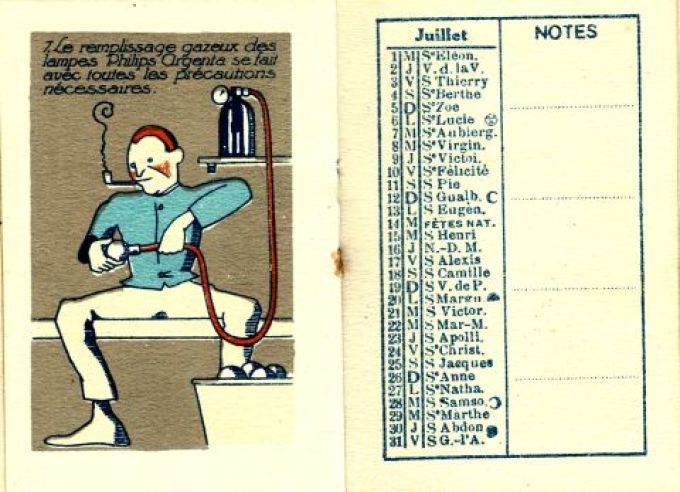 7. Le remplissage gazeux des
lampes Philips Argenta se fait
avec toutes les précautions
nécessaires.
Juillet
1 M Sᵉ Eléon.
2 J V. d. la V.
3 V S Thierry
4 S Sᵉ Berthe
5 D Sᵉ Zoe
6 L Sᵉ Lucie
7 M Sᵉ Aubierg.
8 M Sᵉ Virgin.
9 J Sᵉ Victoi.
10 V Sᵉ Félicité
11 S S Pie
12 D S Gualb.
13 L S Eugèn.
14 M FÊTES NAT.
15 M S Henri
16 J N.-D. M.
17 V S Alexis
18 S S Camille
19 D S V. de P.
20 L S Margu
21 M S Victor.
22 M S Mar-M.
23 J S Apolli.
24 V Sᵉ Christ.
25 S S Jacques
26 D Sᵉ Anne
27 L Sᵉ Natha.
28 M S Samso.
29 M Sᵉ Marthe
30 J S Abdon
31 V S G.-l'A.
NOTES